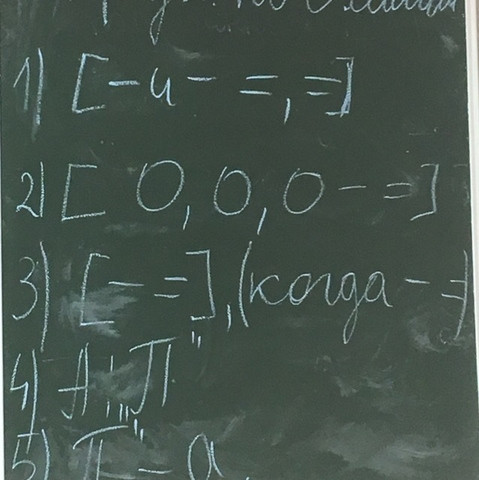 1) [- и - =, =]
2) [ О, О, О - =]
3) [- =], (когда - =)
4) А: „П"
5) „П" - а.